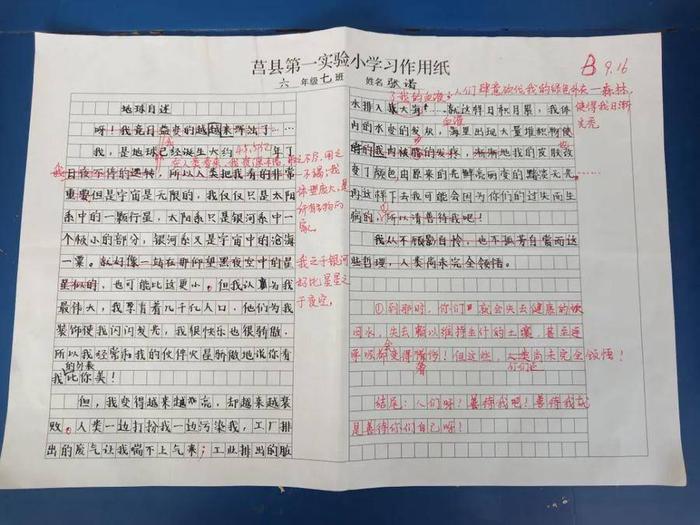 莒县第一实验小学习作用纸
六 年级 七 班 姓名 张诺
B 9.16
地球自述
呀！我竟日益变的越来越浑浊了…
我，是地球已经诞生大约45.5亿年了
我日夜不停的运转，所以人类把我看的非常
重要但是宇宙是无限的，我仅仅只是太阳
系中的一颗行星，太阳系只是银河系中一
个极小的部分，银河系又是宇宙中的沧海
一粟。就好像一站在那仰望黑夜空中的星
星似的，也可能比这更小。但我认为我
最伟大，我养育着几千亿人口，他们为我
装饰使我闪闪发光，我很快乐也很骄傲，
所以我经常和我的伙伴火星骄傲地说你看
我的外表比你美！
但，我变得越来越漂亮，却越来越衰
败。人类一边打扮我一边污染我，工厂排
出的废气让我喘不上气来；工业排出的脏
我之于银河
好比星星之
于夜空。
人们肆意砍伐我的绿色外衣—森林，
使得我日渐
水排入我的血液，就这样日积月累，我体
内的水变的发灰，海里出现大量堆积物使
变了颜色由原来的亮鲜亮丽变的黯淡无光……
再这样下去我可能会因为你们的过失而生
病的，所以请善待我吧！
我从不顾影自怜，也不孤芳自赏而这
些哲理，人类尚未完全领悟。
①到那时，你们就会失去健康的饮
用水，失去赖以维持生计的土壤，甚至连
呼吸都会变得奢侈！但这些，人类尚未完全领悟！
结尾：人们呀！善待我吧！善待我就
是善待你们自己呀！